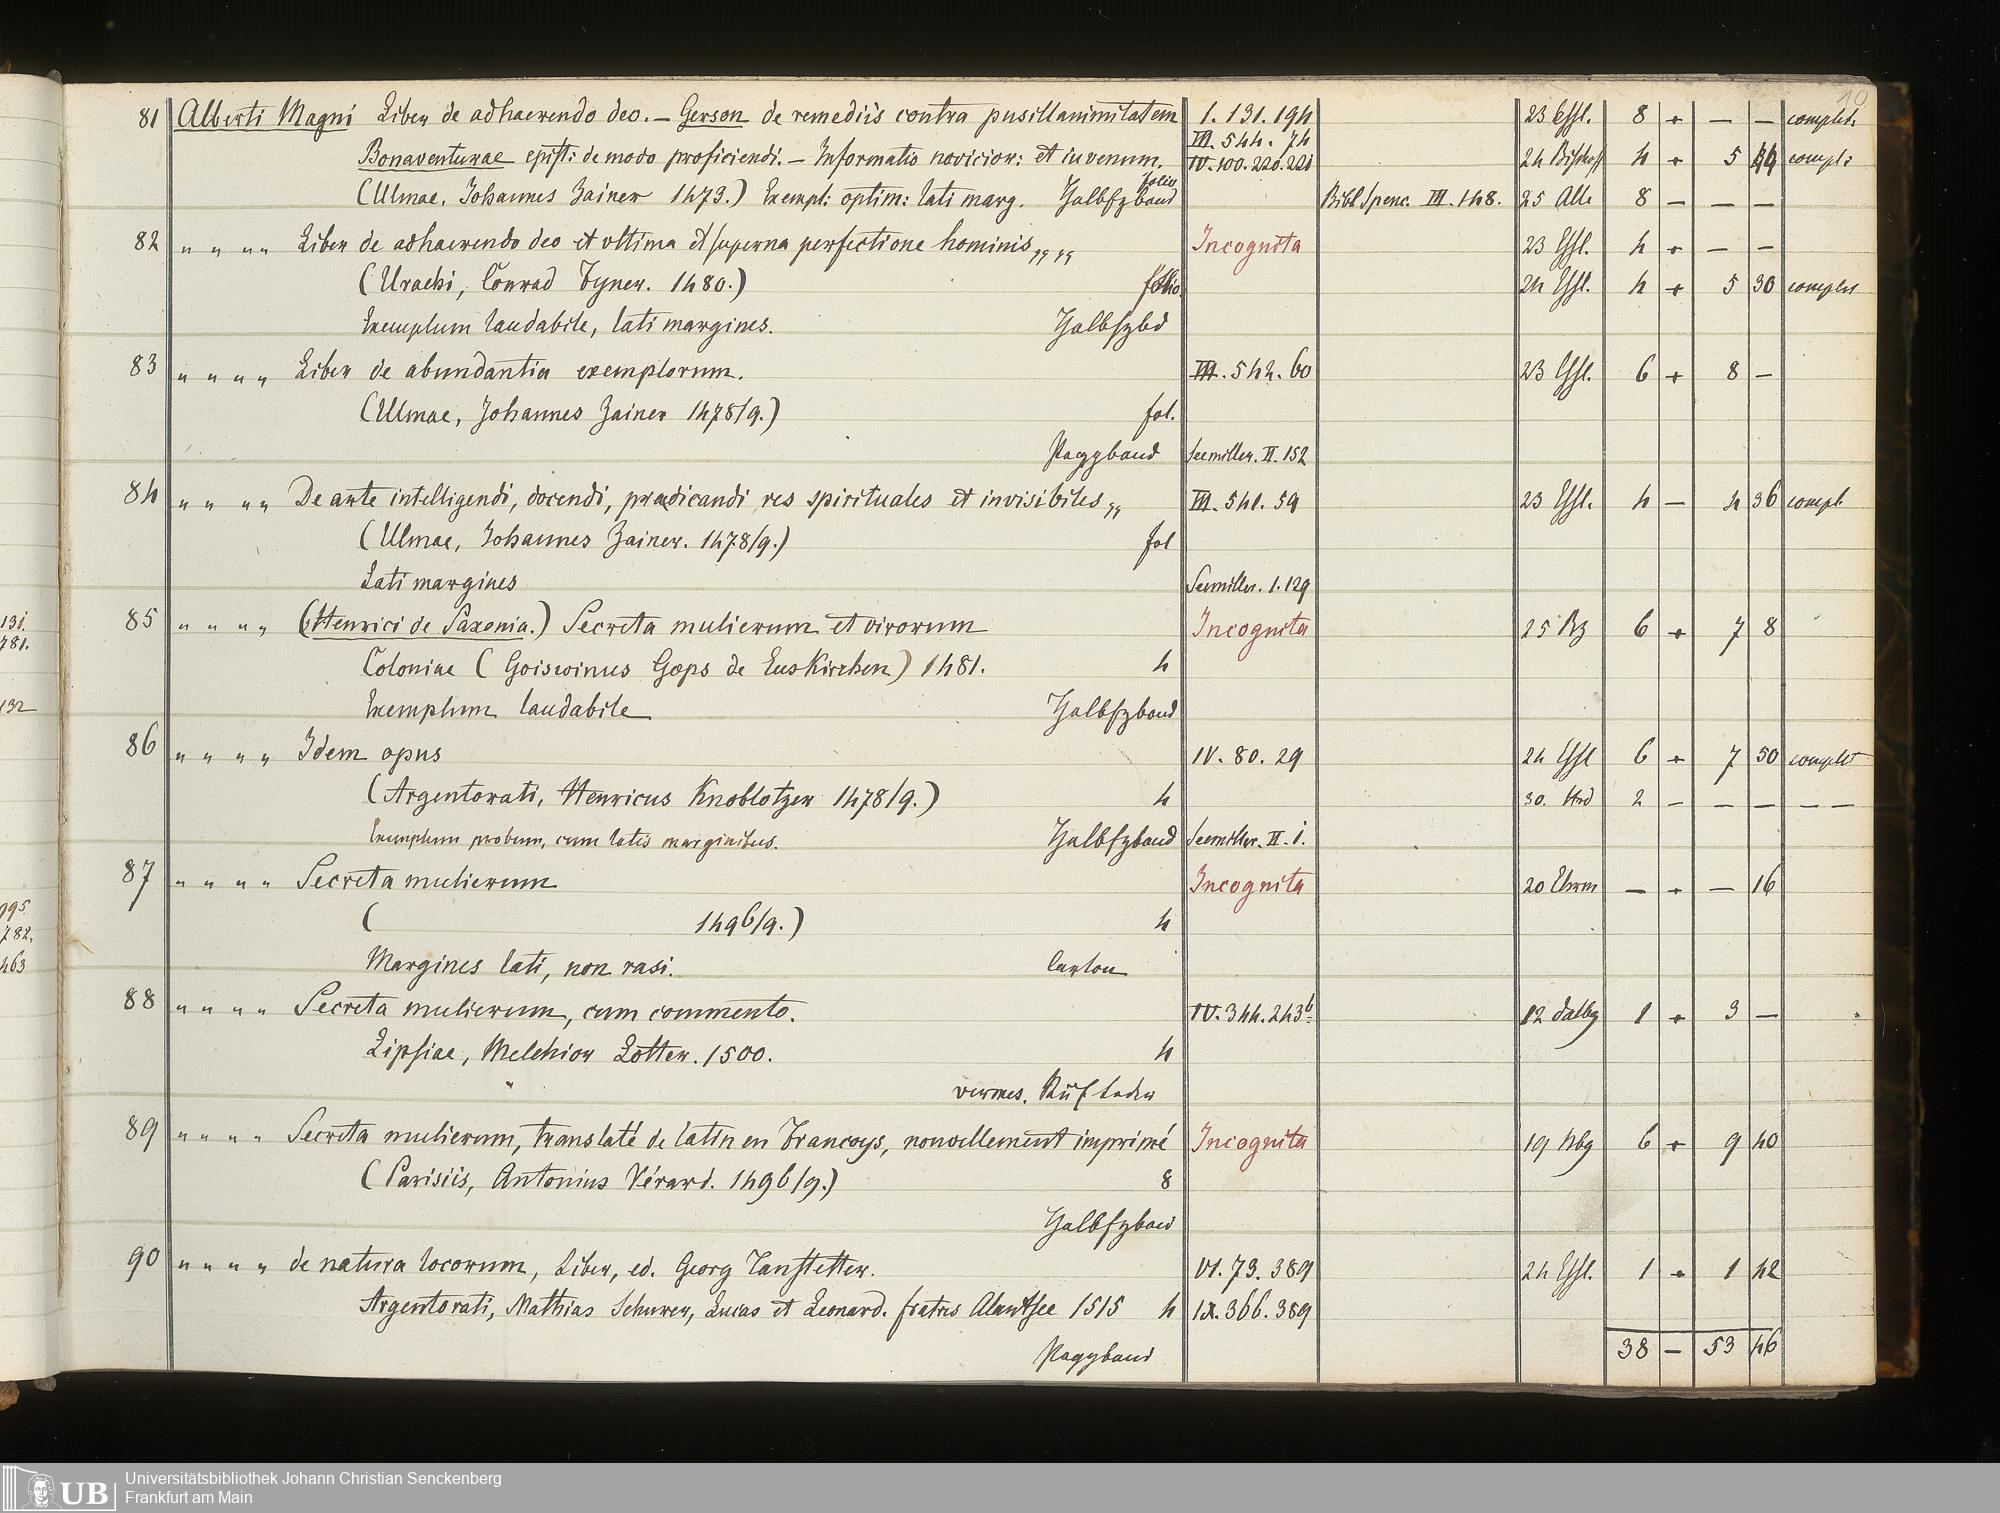 10
81 Alberti Magni Liber de adhaerendo deo. — Gerson de remediis contra pusillanimitatem I. 131. 194 23 Essl. 8 + — — complet:
III. 544. 74
Bonaventurae epist: de modo proficiendi. — Informatio novicior: et iuvenum. IV. 100. 220. 221 24 Bischoff 4 + 5 44 compl:
(Ulmae, Johannes Zainer 1473.) Exempl: optim: lati marg. folio Halbfzband Bibl Spenc. III. 148. 25 Alle 8 — — —
82 " " " " Liber de adhaerendo deo et ultima et superna perfectione hominis " " Incognita 23 Essl. 4 + — —
(Urachi, Conrad Fyner. 1480.) folio. 24 Essl. 4 + 5 30 complet
Exemplum laudabile, lati margines. Halbfzbd
83 " " " " Liber de abundantia exemplorum. III. 542. 60 23 Essl. 6 + 8 —
(Ulmae, Johannes Zainer 1478/9.) fol.
Pappband Seemiller. II. 152
84 " " " " De arte intelligendi, docendi, praedicandi res spirituales et invisibiles " III. 541. 59 23 Essl. 4 — 4 36 compl.
(Ulmae, Johannes Zainer. 1478/9.) fol
Lati margines Seemiller. I. 129
85 " " " " (Henrici de Saxonia.) Secreta mulierum et virorum Incognita 25 6 + 7 8
Coloniae (Goiswinus Gops de Euskirchen) 1481. 4
Exemplum laudabile Halbfzband
86 " " " " Idem opus IV. 80. 29 24 Essl 6 + 7 50 complet
(Argentorati, Henricus Knoblotzer 1478/9.) 4 30. 2 — — — — —
Exemplum probum, cum latis marginibus. Halbfzband Seemiller. II. i.
87 " " " " Secreta mulierum Incognita 20 — + — 16
( 1496/9.) 4
Margines lati, non rasi. Carton
88 " " " " Secreta mulierum, cum commento. IV. 344. 243b 12 Dalbg 1 + 3 —
Lipsiae, Melchior Lotter. 1500. 4
vermes. Rückleder
89 " " " " Secreta mulierum, translaté de latin en Francoys, nouvellement imprimé Incognita 19 6 + 9 40
(Parisiis, Antonius Vérard. 1496/9.) 8
Halbfzband
90 " " " " de natura locorum, Liber, ed. Georg Tanstetter. VI. 73. 389 24 Essl. 1 + 1 42
Argentorati, Mathias Schurer, Lucas et Leonard. fratres Alantsee 1515 4 IX. 366. 389
Pappband 38 — 53 46
131.
781.
132
195
782.
463
UB Universitätsbibliothek Johann Christian Senckenberg
Frankfurt am Main